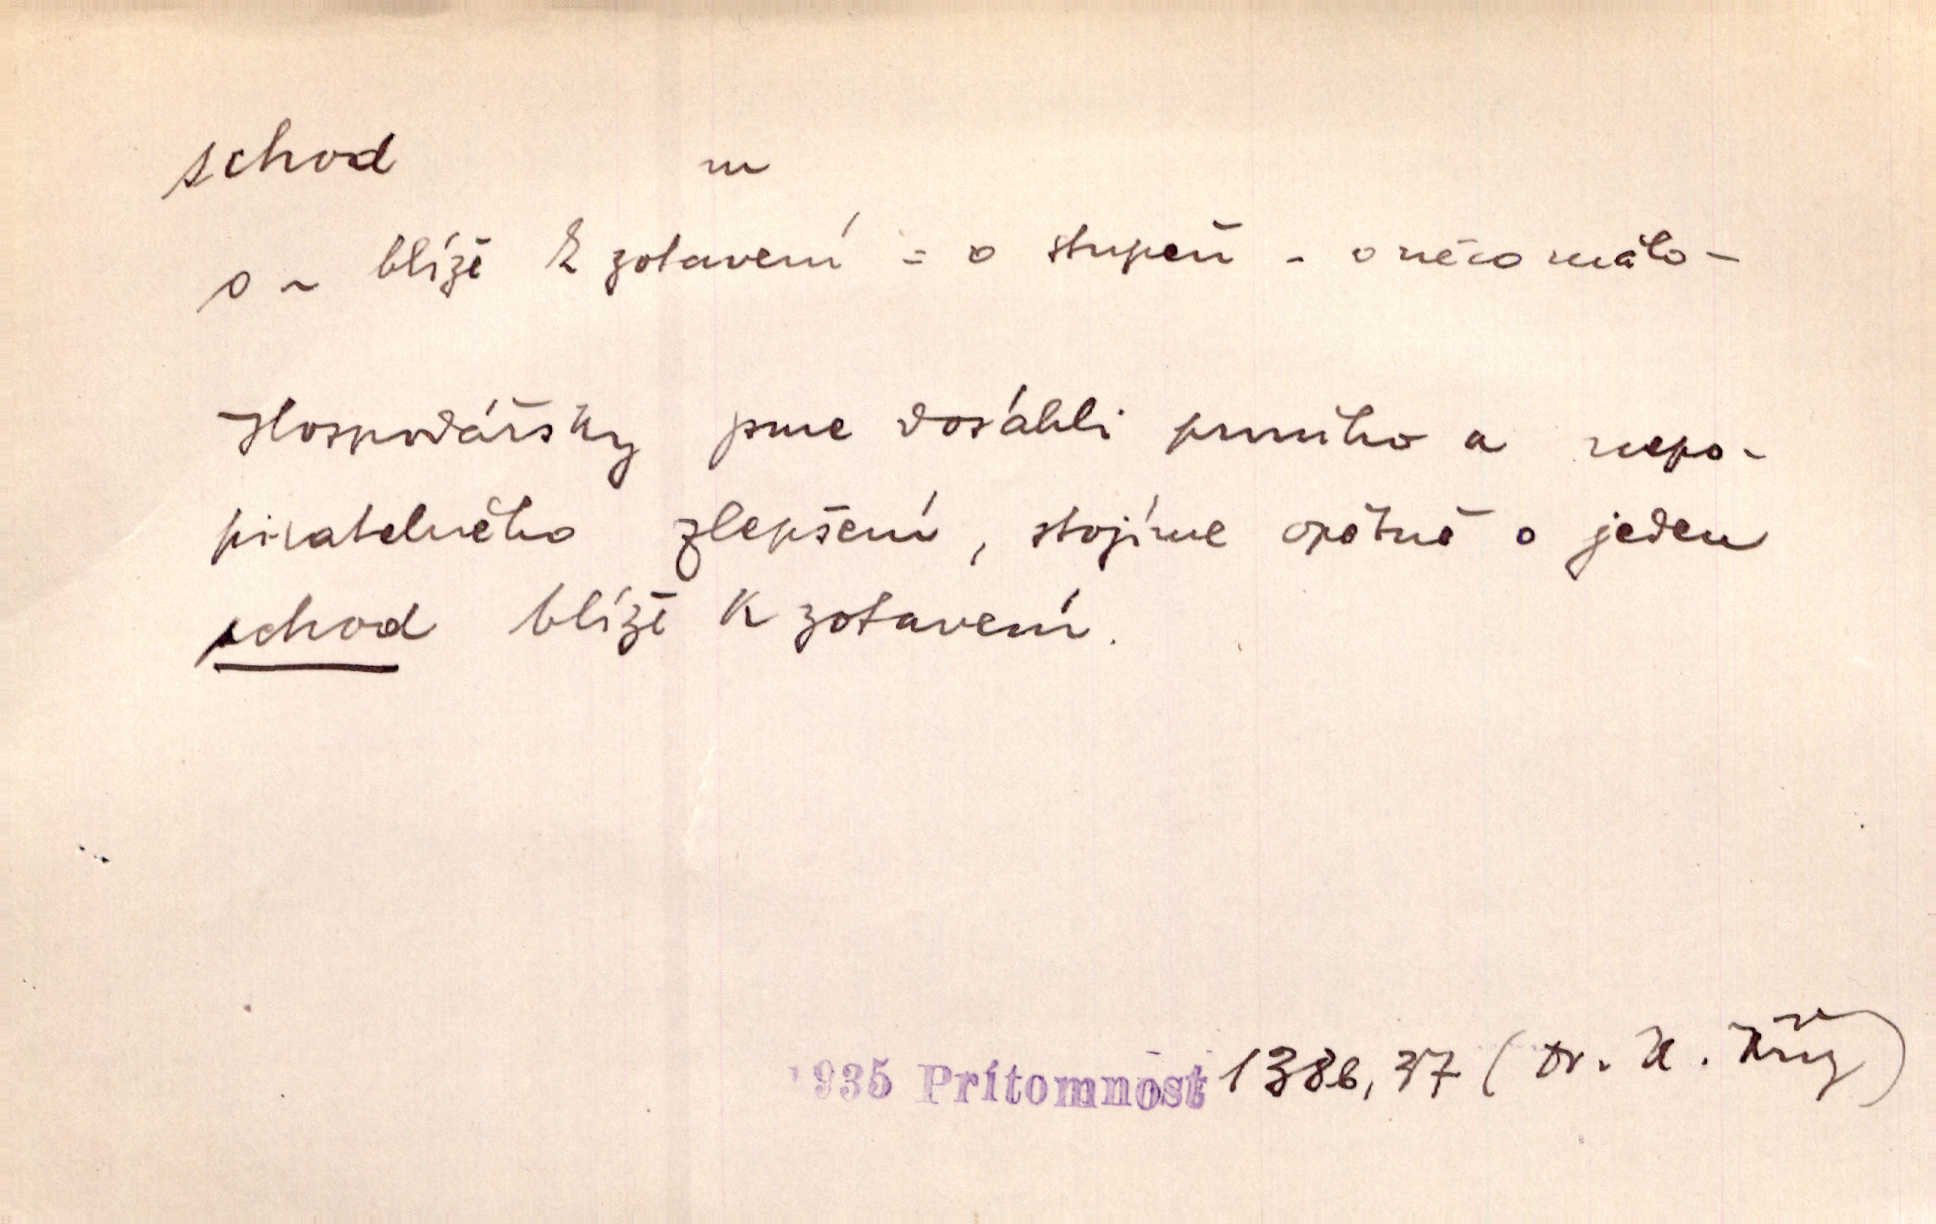 schod m
o ~ blíže k zotavení = o stupeň - o něco málo -
Hospodářsky jsme dosáhli prvního a nepo-
piratelného zlepšení, stojíme opětně o jeden
schod blíže k zotavení.
1935 Prítomnost 1386, 37 (Dr. K. Kříž)